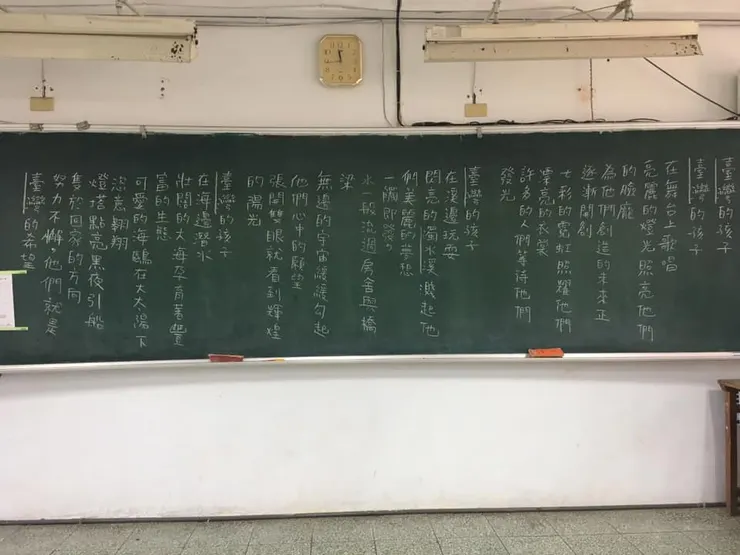 臺灣的孩子
臺灣的孩子
在舞台上歌唱
亮麗的燈光照亮他們
的臉龐
為他們創造的未來正
逐漸開創
七彩的霓虹照耀他們
漂亮的衣裳
許多的人們等待他們
發光
臺灣的孩子
在溪邊玩耍
閃亮的濁水溪濺起他
們美麗的夢想
一觸即發
水一般流過房舍與橋
梁
無邊的宇宙緩緩勾起
他們心中的願望
張開雙眼就看到輝煌
的陽光
臺灣的孩子
在海邊潛水
壯闊的大海孕育著豐
富的生態
可愛的海鷗在大太陽下
恣意翱翔
燈塔點亮黑夜引船
隻於回家的方向
努力不懈他們就是
臺灣的希望